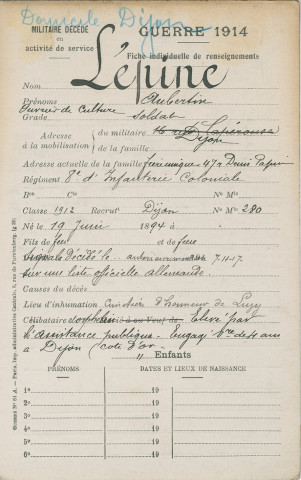 Domicile Dijon
MILITAIRE DÉCÉDÉ
en
activité de service
GUERRE 1914
Fiche individuelle de renseignements
Nom Lépine
Prénoms Aubertin
Ouvrier de Culture
Grade soldat
Adresse du militaire 16 rue Lapérouse
à la mobilisation de la famille Dijon
Adresse actuelle de la famille 47 r Denis Papin
Régiment 8e d'Infanterie Coloniale
Bon Cie No Mle
Classe 1912 Recrut Dijon No Mle 280
Né le 19 Juin 1894 à
Fils de feu et de feue
signalé Décédé le 7-11-17.
sur une liste officielle allemande.
Causes du décès
Lieu d'inhumation Cimetière d'honneur de
Célibataire orphelin ou Veuf de Elevé par
l'assistance publique. Engagé de 4 ans
à Dijon (côte d'or.
" Enfants
PRÉNOMS DATES ET LIEUX DE NAISSANCE
1o 19
2o 19
3o 19
4o 19
5o 19
6o 19